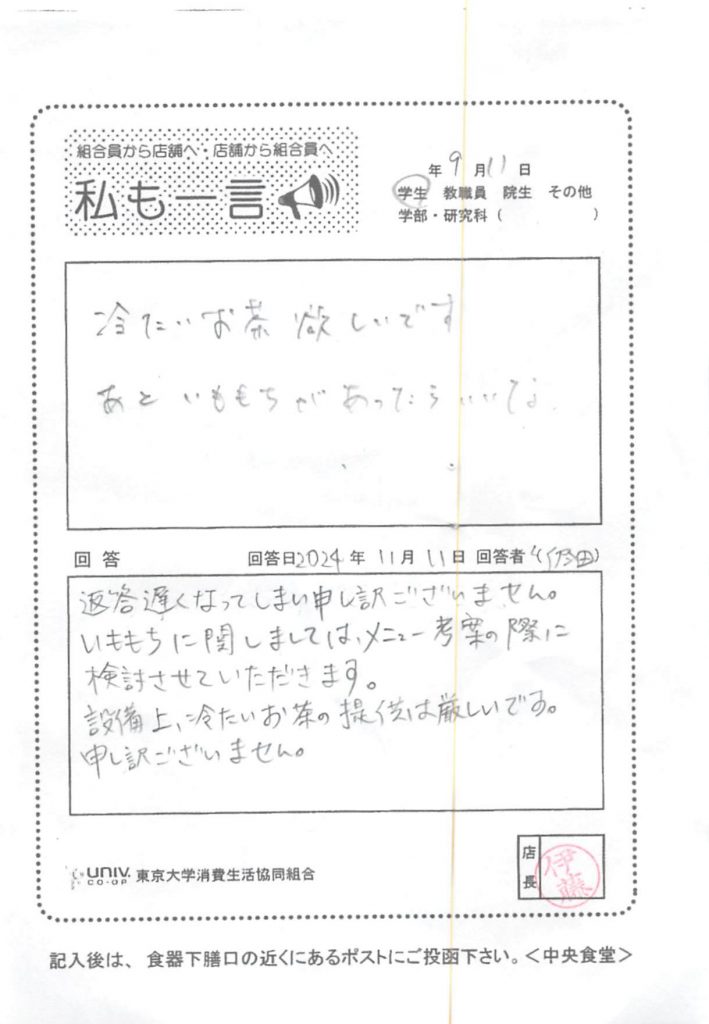 組合員から店舗へ・店舗から組合員へ
私も一言
年 9 月 11 日
学生 教職員 院生 その他
学部・研究科（ ）
冷たいお茶 欲しいです
あと いももちがあったらいいな
回答 回答日2024年 11月 11日 回答者
返答遅くなってしまい申し訳ございません。
いももちに関しましては、メニュー考案の際に
検討させていただきます。
設備上、冷たいお茶の提供は厳しいです。
申し訳ございません。
UNIV. CO-OP 東京大学消費生活協同組合
店長 伊藤
記入後は、食器下膳口の近くにあるポストにご投函下さい。＜中央食堂＞